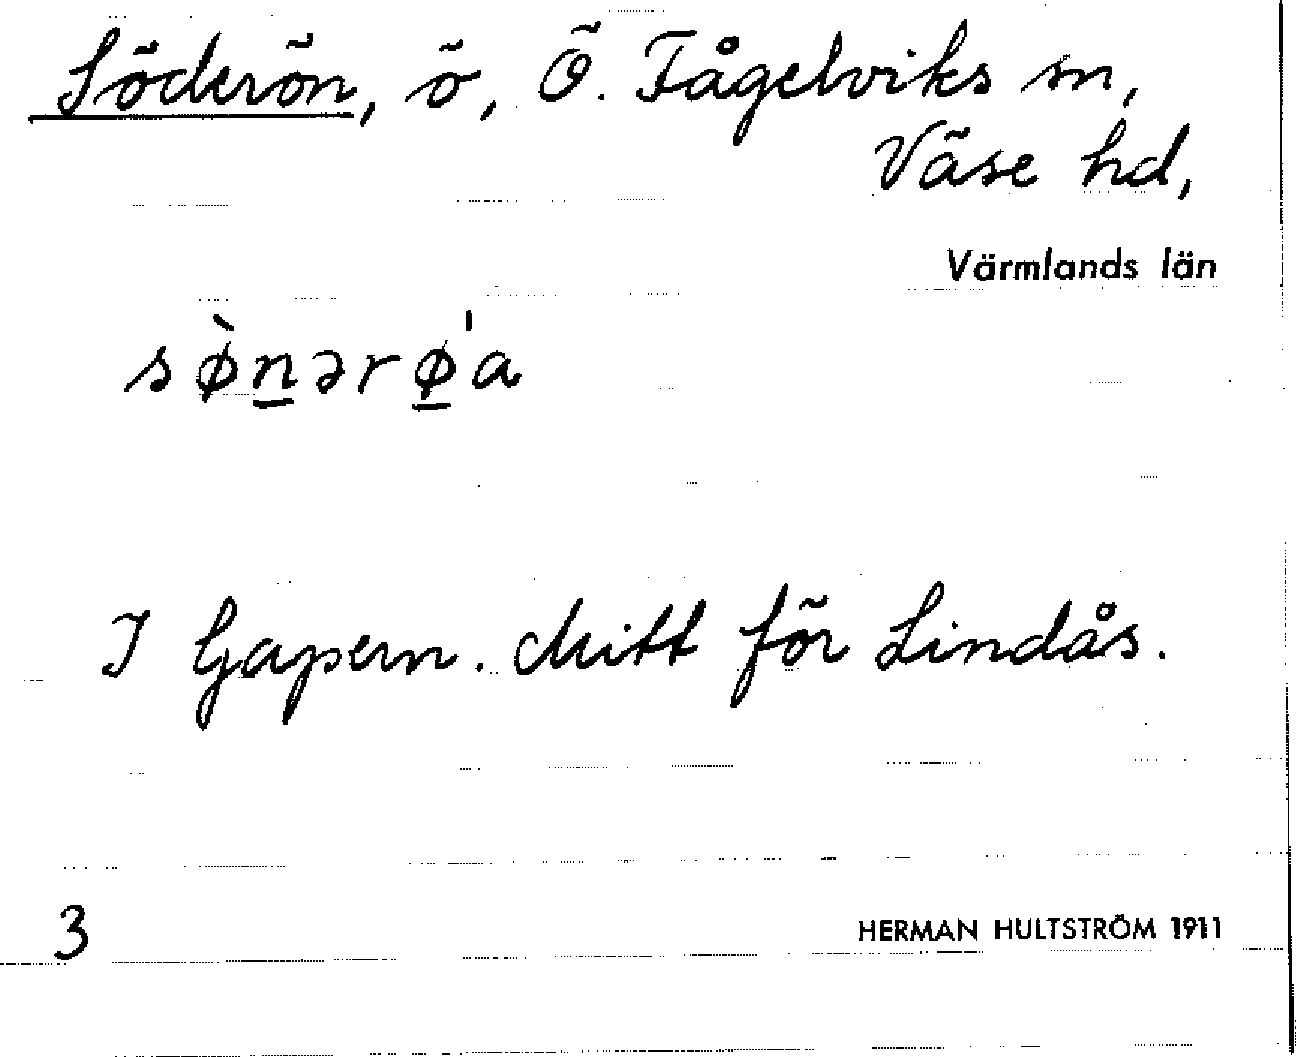 Söderön, ö, Ö. Fågelviks sn,
Väse hd,
Värmlands län
sø̀n̲ərø̲̍a
I Gapern. Mitt för Lindås.
3
HERMAN HULTSTRÖM 1911